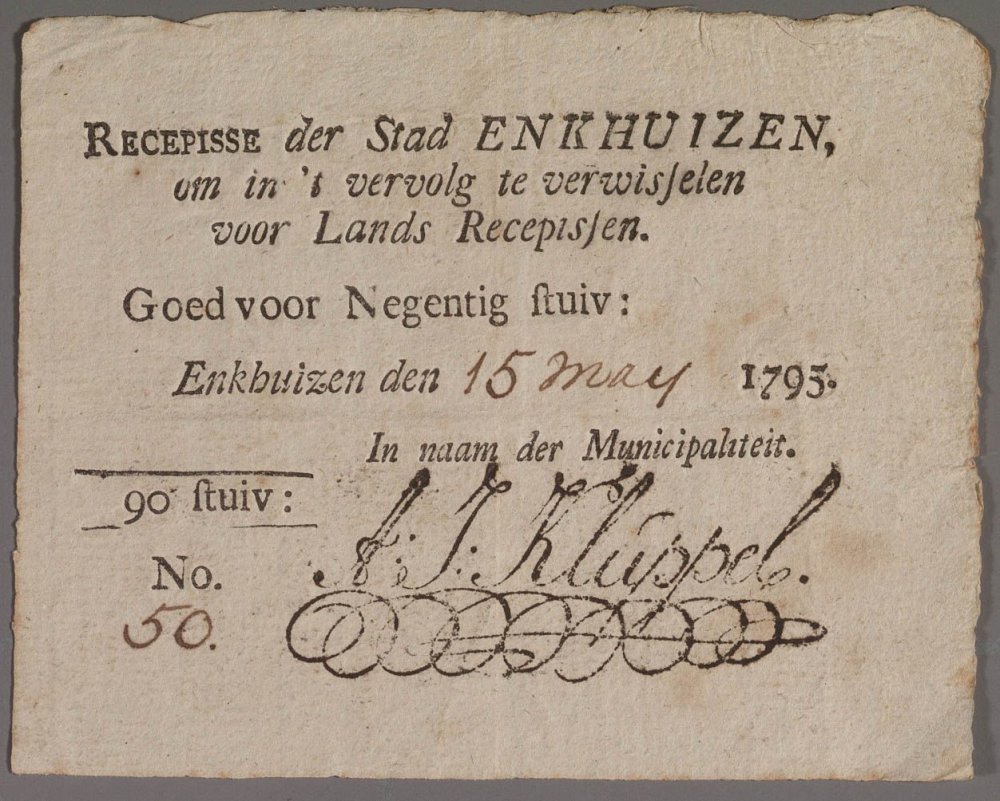 RECEPISSE der Stad ENKHUIZEN,
om in 't vervolg te verwisſelen
voor Lands Recepisſen.
Goed voor Negentig ſtuiv:
Enkhuizen den 15 May 1795.
In naam der Municipaliteit.
90 ſtuiv:
A: J: Kluppel.
No.
50.